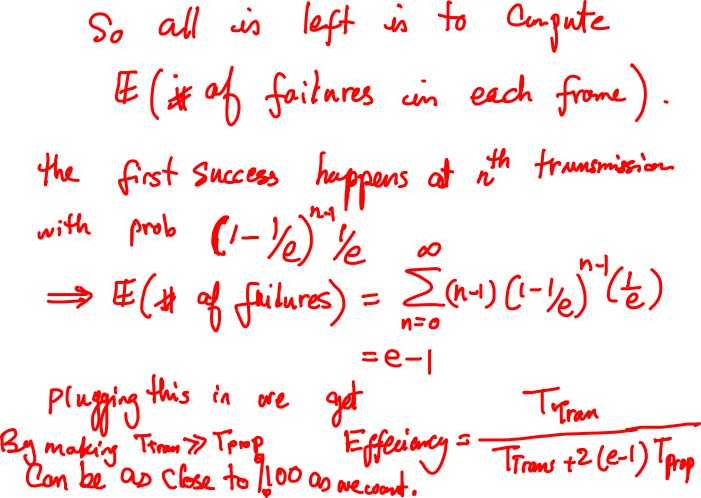 So all is left is to Compute
𝔼(# of failures in each frame).
the first success happens at nᵗʰ transmission
with prob (1-1/e)ⁿ⁻¹ 1/e
⟹ 𝔼(# of failures) = ∑_{n=0}^{∞} (n-1)(1-1/e)ⁿ⁻¹(1/e)
= e-1
Plugging this in we get
Effeciancy = T_Tran / (T_Trans + 2(e-1) T_prop)
By making T_Trans ≫ T_prop
Can be as close to %100 as we want.